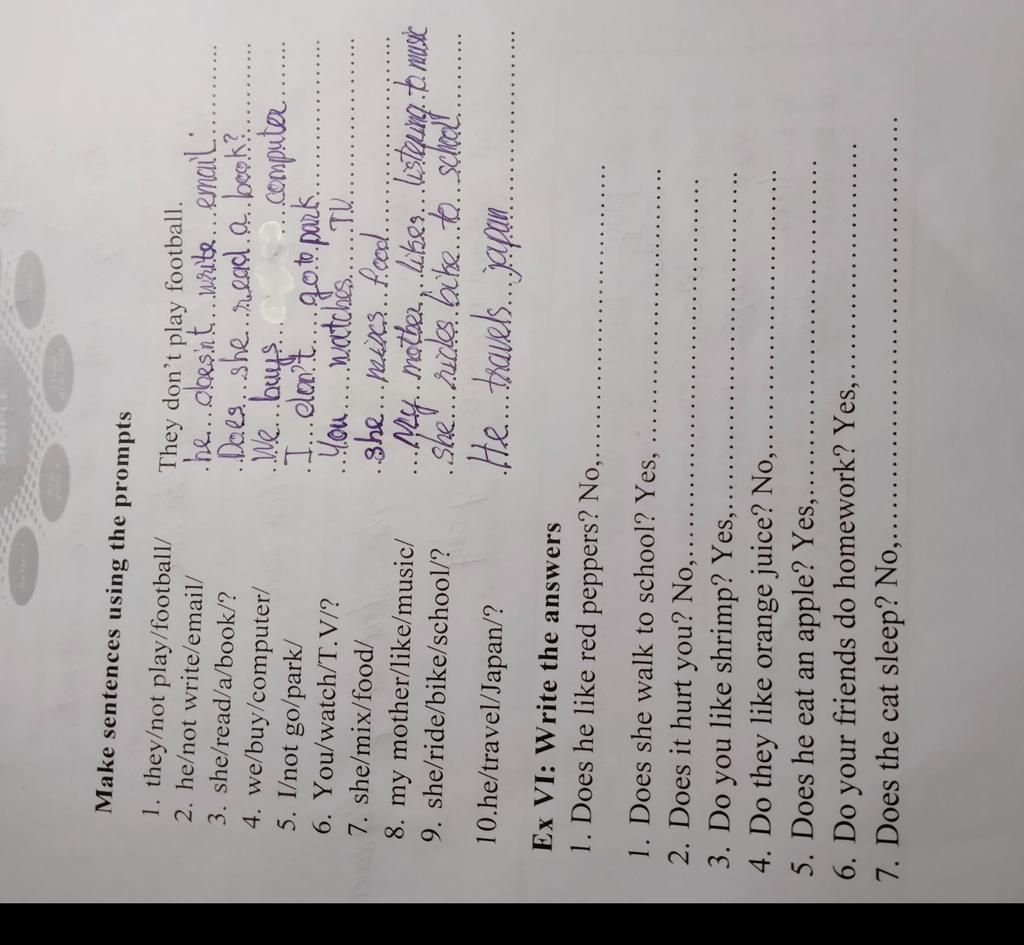 Make sentences using the prompts
1. they/not play/football/ They don't play football.
2. he/not write/email/ he doesn't write email.
3. she/read/a/book/? Does she read a book?
4. we/buy/computer/ We buys computer
5. I/not go/park/ I don't go to park
6. You/watch/T.V/? You watches TV
7. she/mix/food/ she mixes food
8. my mother/like/music/ My mother likes listening to music
9. she/ride/bike/school/? she rides bike to school
10.he/travel/Japan/? He travels japan
Ex VI: Write the answers
1. Does he like red peppers? No,
1. Does she walk to school? Yes,
2. Does it hurt you? No,
3. Do you like shrimp? Yes,
4. Do they like orange juice? No,
5. Does he eat an apple? Yes,
6. Do your friends do homework? Yes,
7. Does the cat sleep? No,